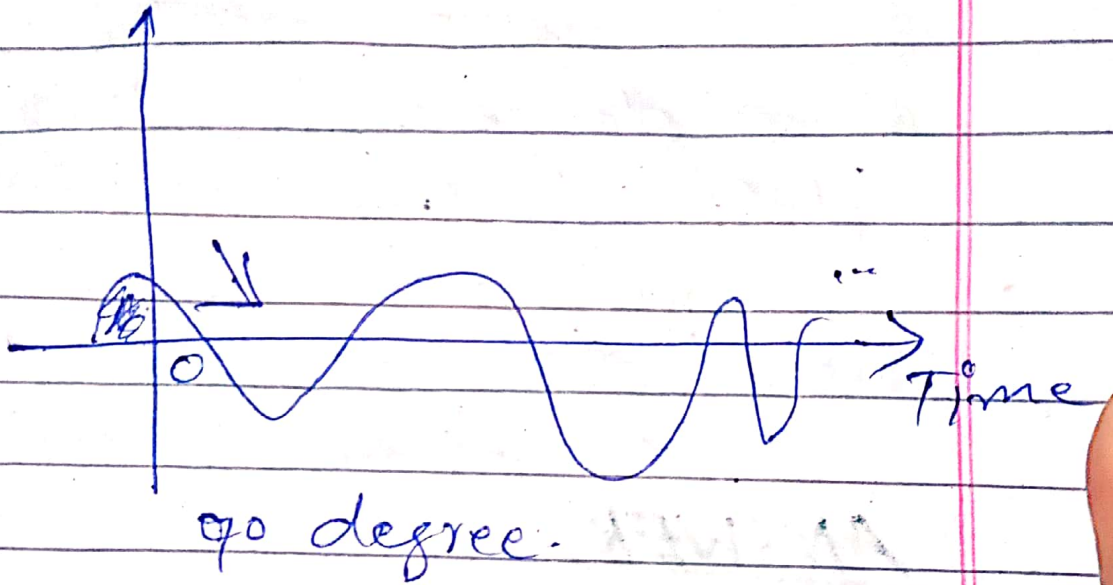 0
Time
90 degree.